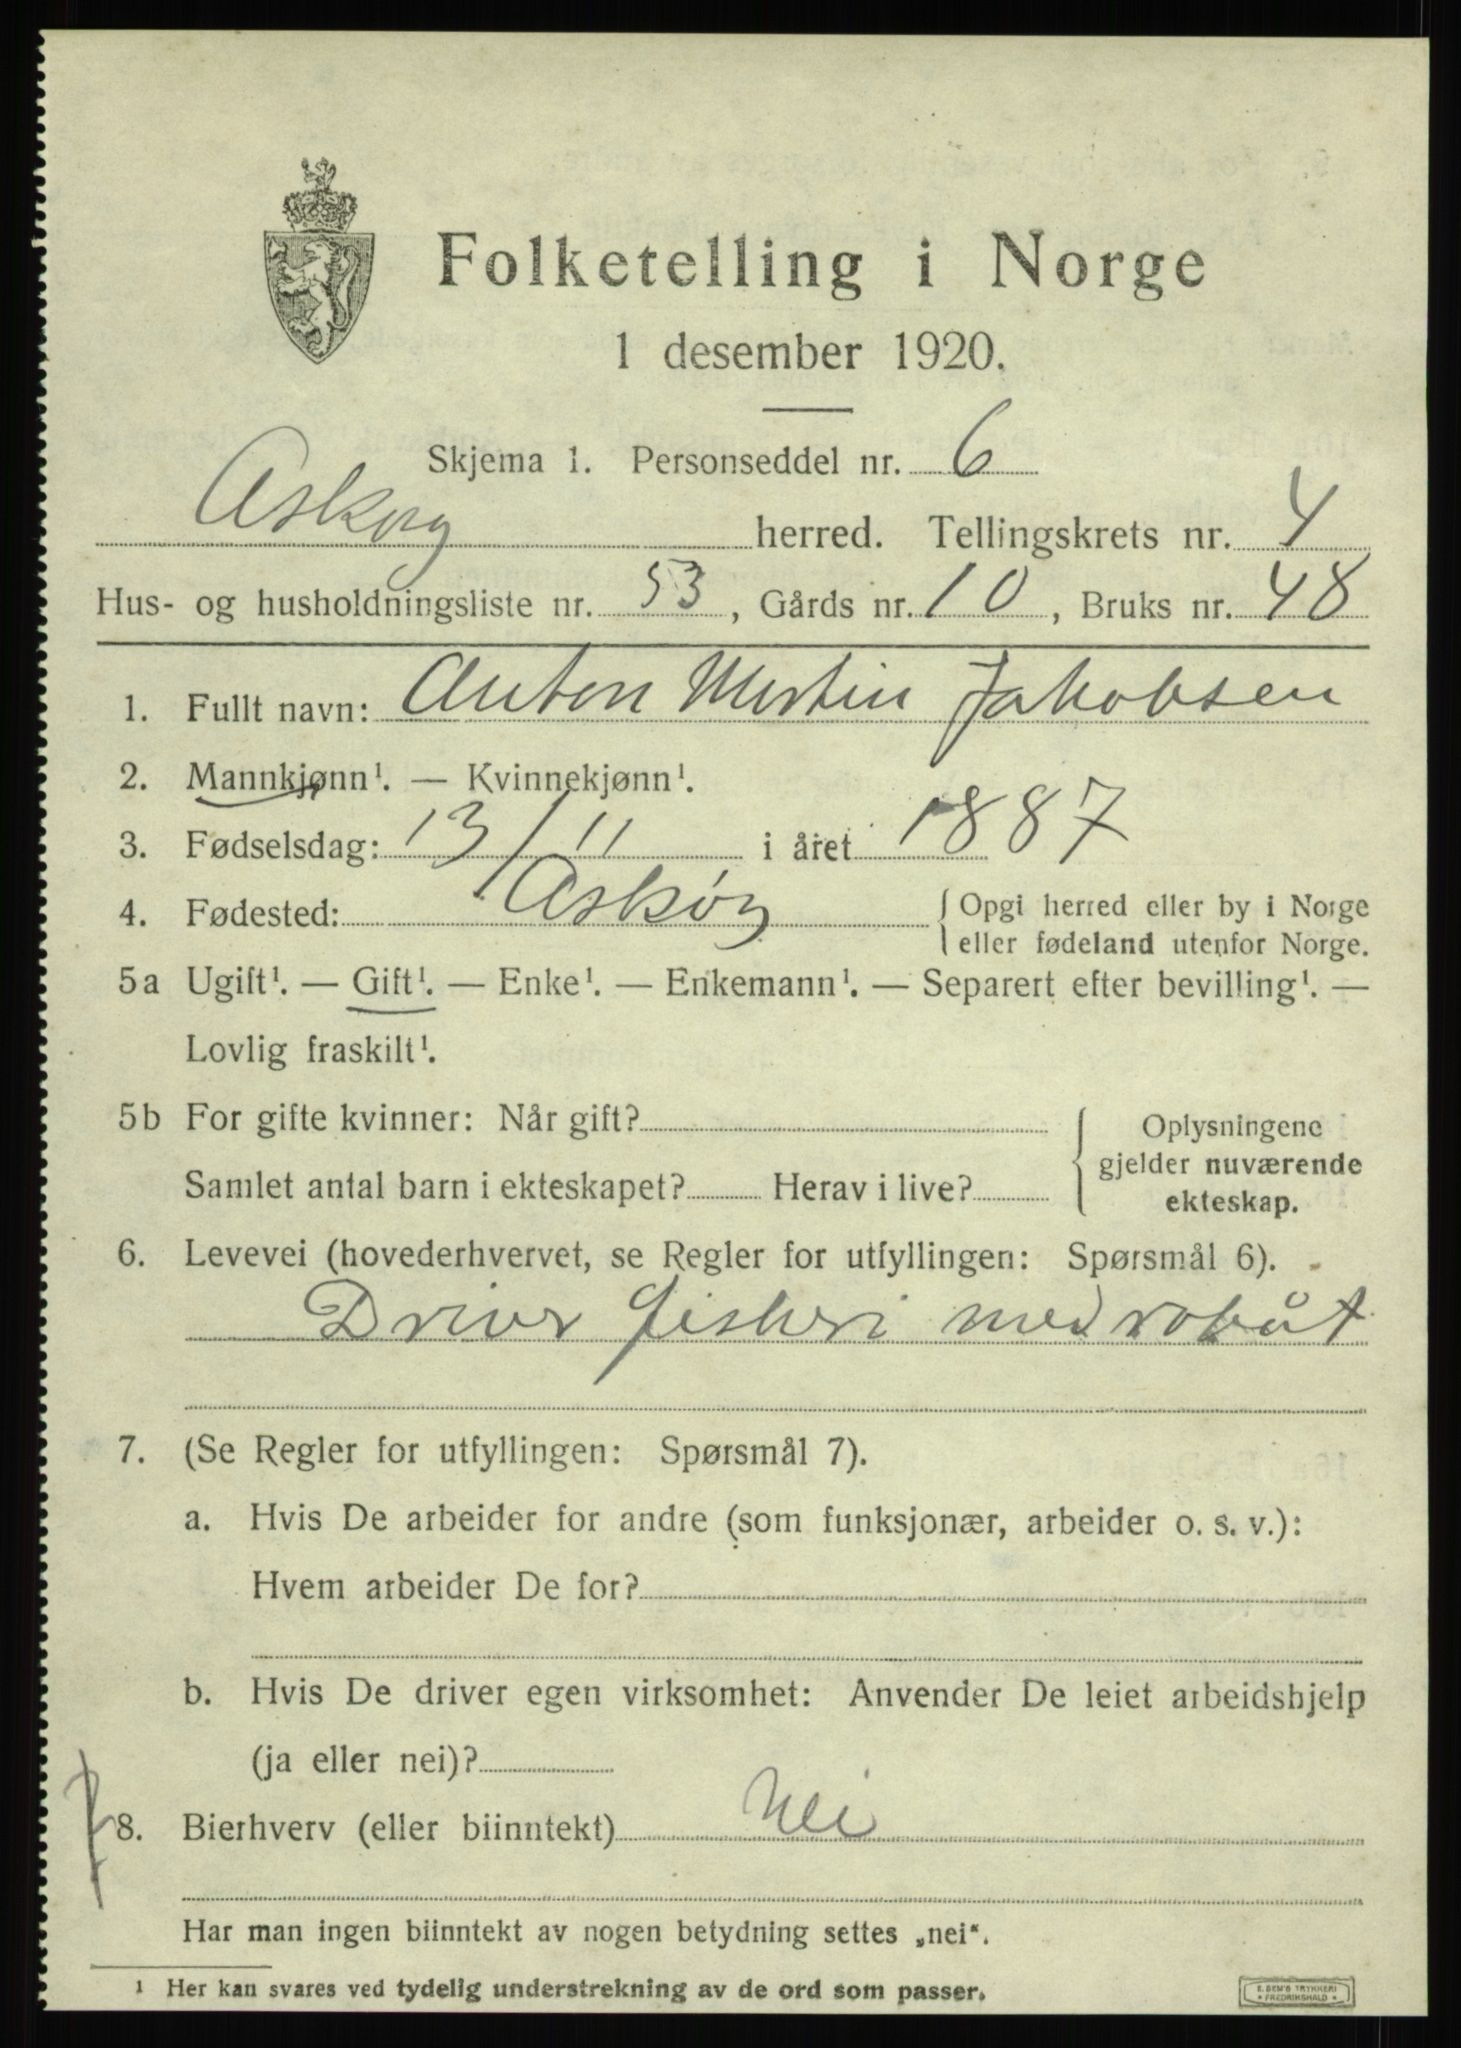 Folketelling i Norge
1 desember 1920.
Skjema 1. Personseddel nr. 6
Askøy herred. Tellingskrets nr. 4
Hus- og husholdningsliste nr. 53, Gårds nr. 10, Bruks nr. 48
1. Fullt navn: Anton Martin Jakobsen
2. Mannkjønn¹. — Kvinnekjønn¹.
3. Fødselsdag: 13/11 i året 1887
4. Fødested: Askøy { Opgi herred eller by i Norge
eller fødeland utenfor Norge.
5a Ugift¹. — Gift¹. — Enke¹. — Enkemann¹. — Separert efter bevilling¹. —
Lovlig fraskilt¹.
5b For gifte kvinner: Når gift?
Samlet antal barn i ekteskapet? Herav i live?
{ Oplysningene
gjelder nuværende
ekteskap.
6. Levevei (hovederhvervet, se Regler for utfyllingen: Spørsmål 6).
Driver fiskeri med robåt
7. (Se Regler for utfyllingen: Spørsmål 7).
a. Hvis De arbeider for andre (som funksjonær, arbeider o. s. v.):
Hvem arbeider De for?
b. Hvis De driver egen virksomhet: Anvender De leiet arbeidshjelp
(ja eller nei)?
8. Bierhverv (eller biinntekt) Nei
Har man ingen biinntekt av nogen betydning settes „nei".
¹ Her kan svares ved tydelig understrekning av de ord som passer.
E. SEM'S TRYKKERI
* FREDRIKSHALD *